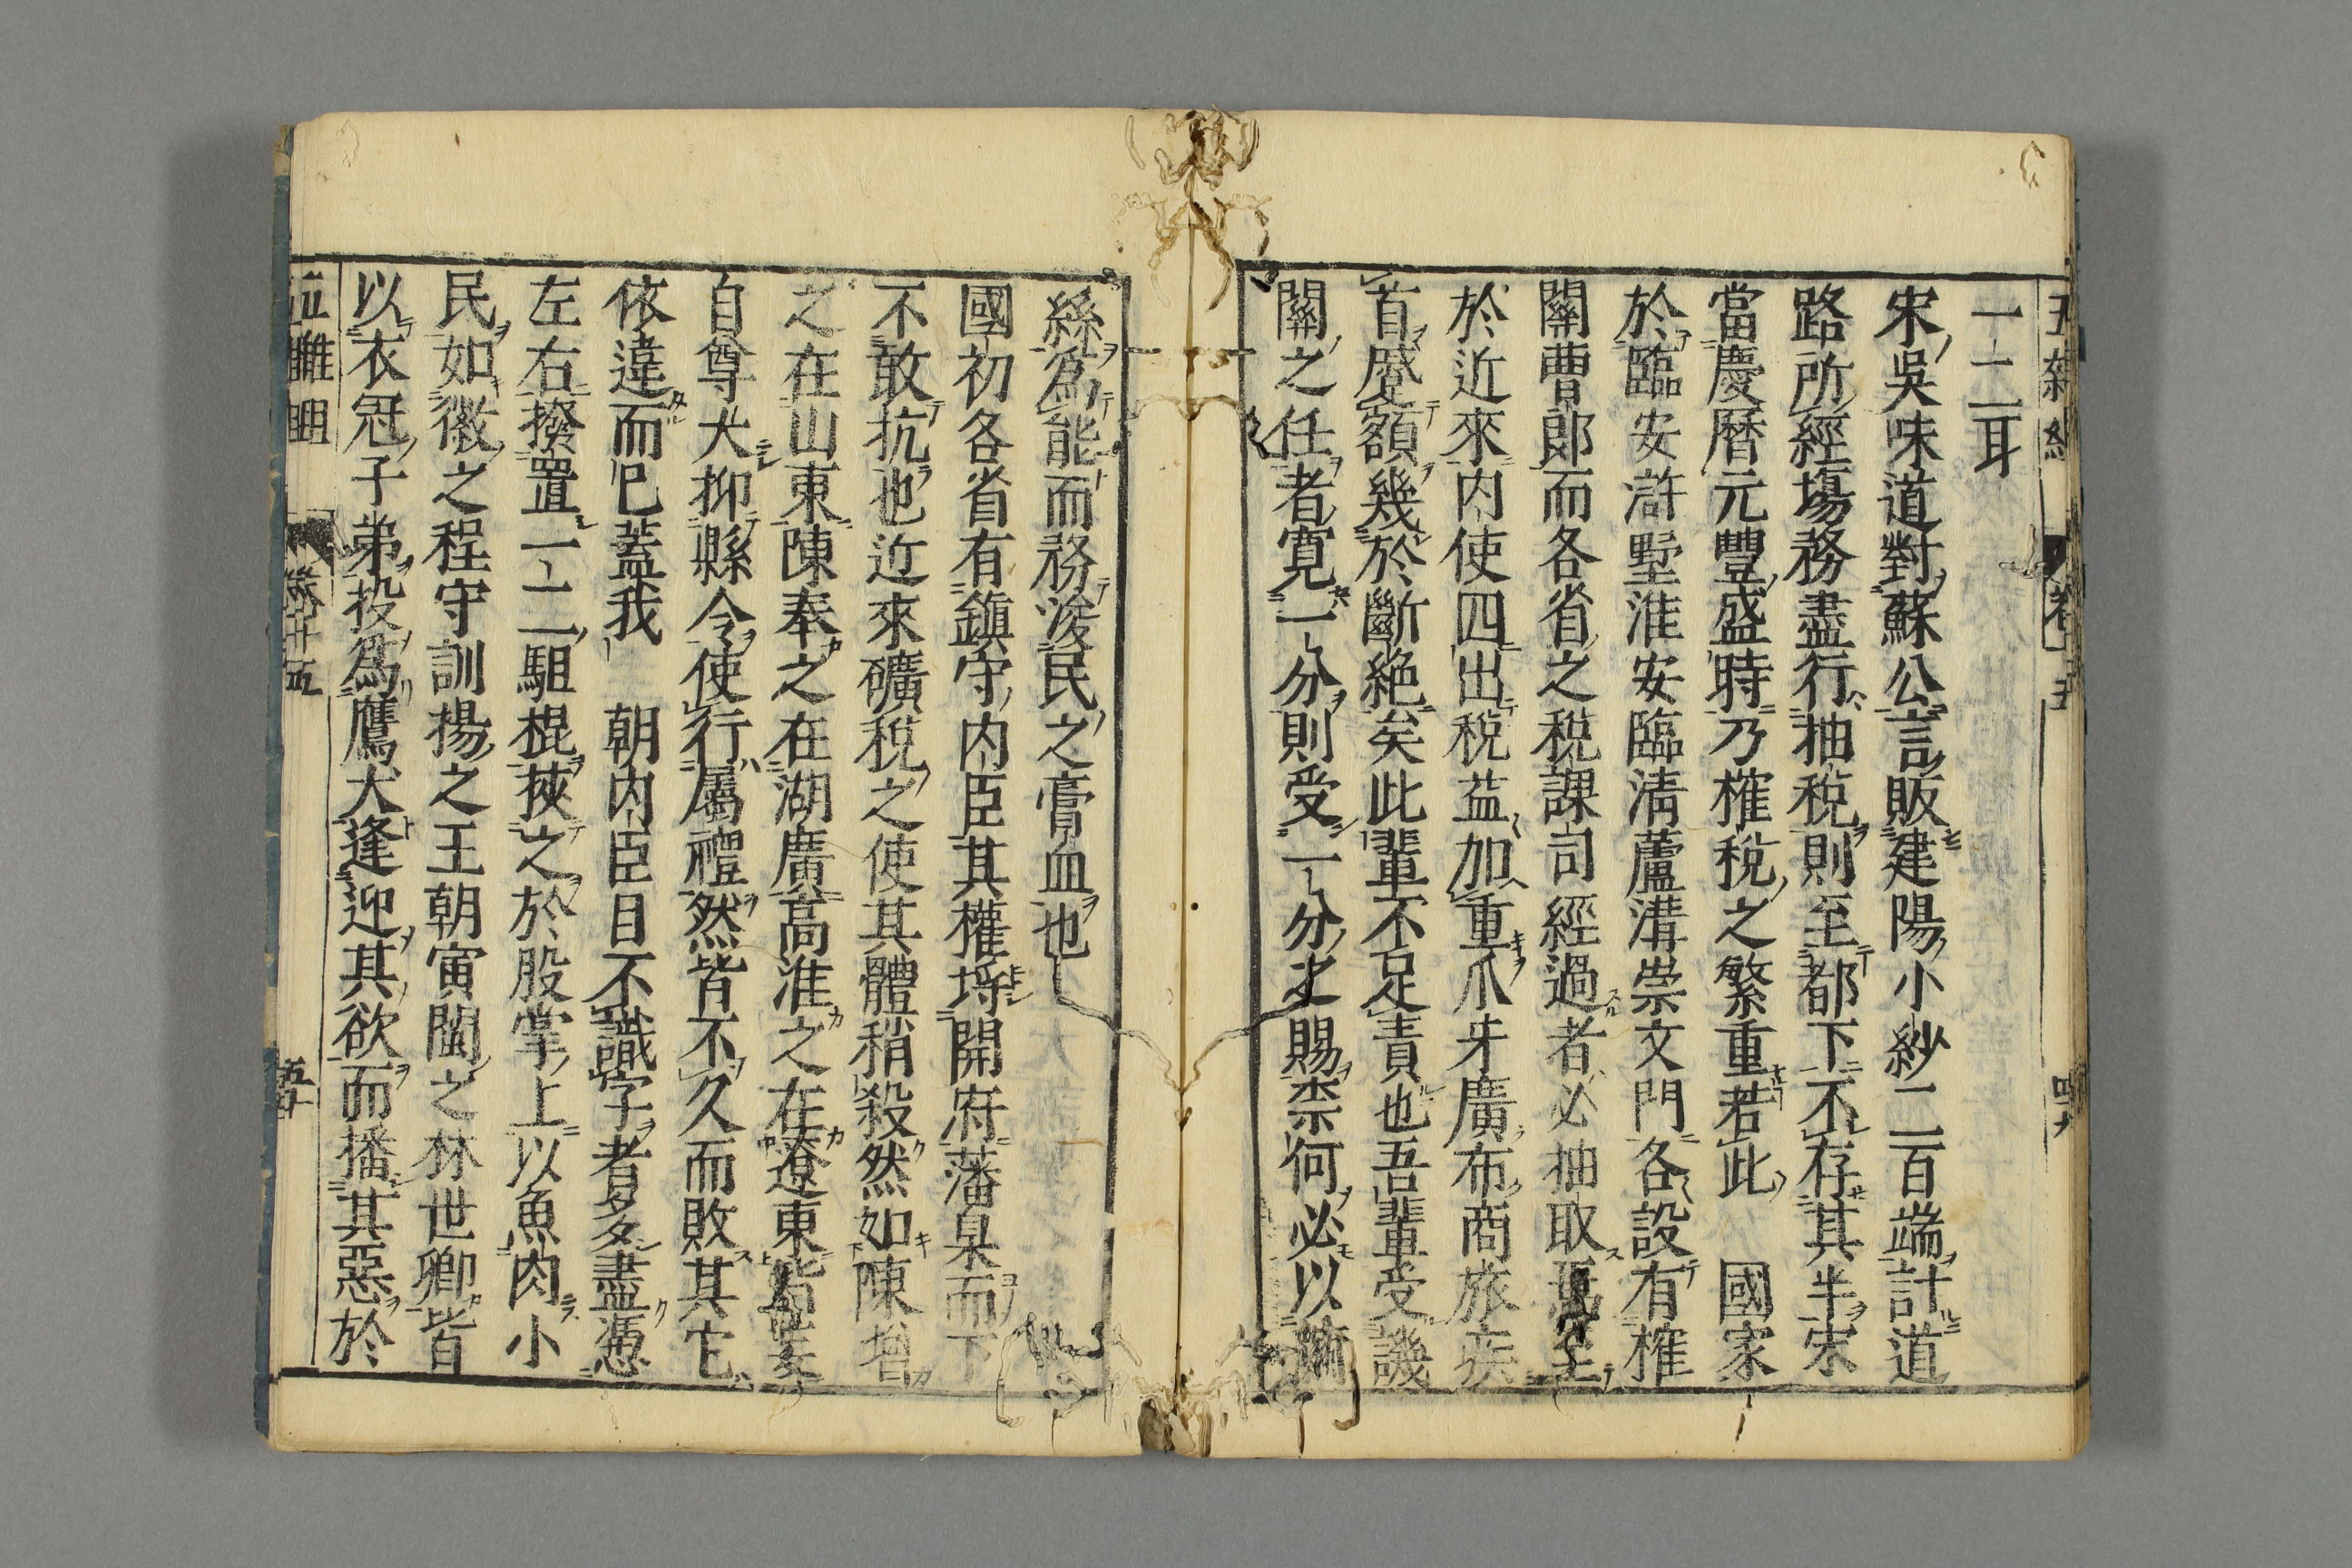 一二耳
宋吳味道對蘇公言販建陽小紗二百端計道
路所經塲務盡行抽稅則至都下不存其半宋
當慶曆元豐盛時乃榷稅之繁重若此國家
於臨安滸墅淮安臨清蘆溝崇文門各設有榷
關曹郎而各省之稅課司經過者必抽取焉至
於近來内使四出稅益加重爪牙廣布商旅疾
首蹙額幾於斷絶矣此輩不足責也吾輩受譏
關之任者寛一分則受一分之賜柰何必以繭
絲爲能而務浚民之膏血也
國初各省有鎮守内臣其權埒開府藩臬而下
不敢抗也近來礦稅之使其體稍殺然如陳增
之在山東陳奉之在湖廣高淮之在遼東皆妄
自尊大抑縣令使行屬禮然皆不久而敗其它
依違而已蓋我朝内臣目不識字者多盡憑
左右撥置一二駔棍挾之於股掌上以魚肉小
民如徽之程守訓揚之王朝寅閩之林世卿皆
以衣冠子弟投爲鷹犬逢迎其欲而播其惡於
五雜俎 卷十五 五十